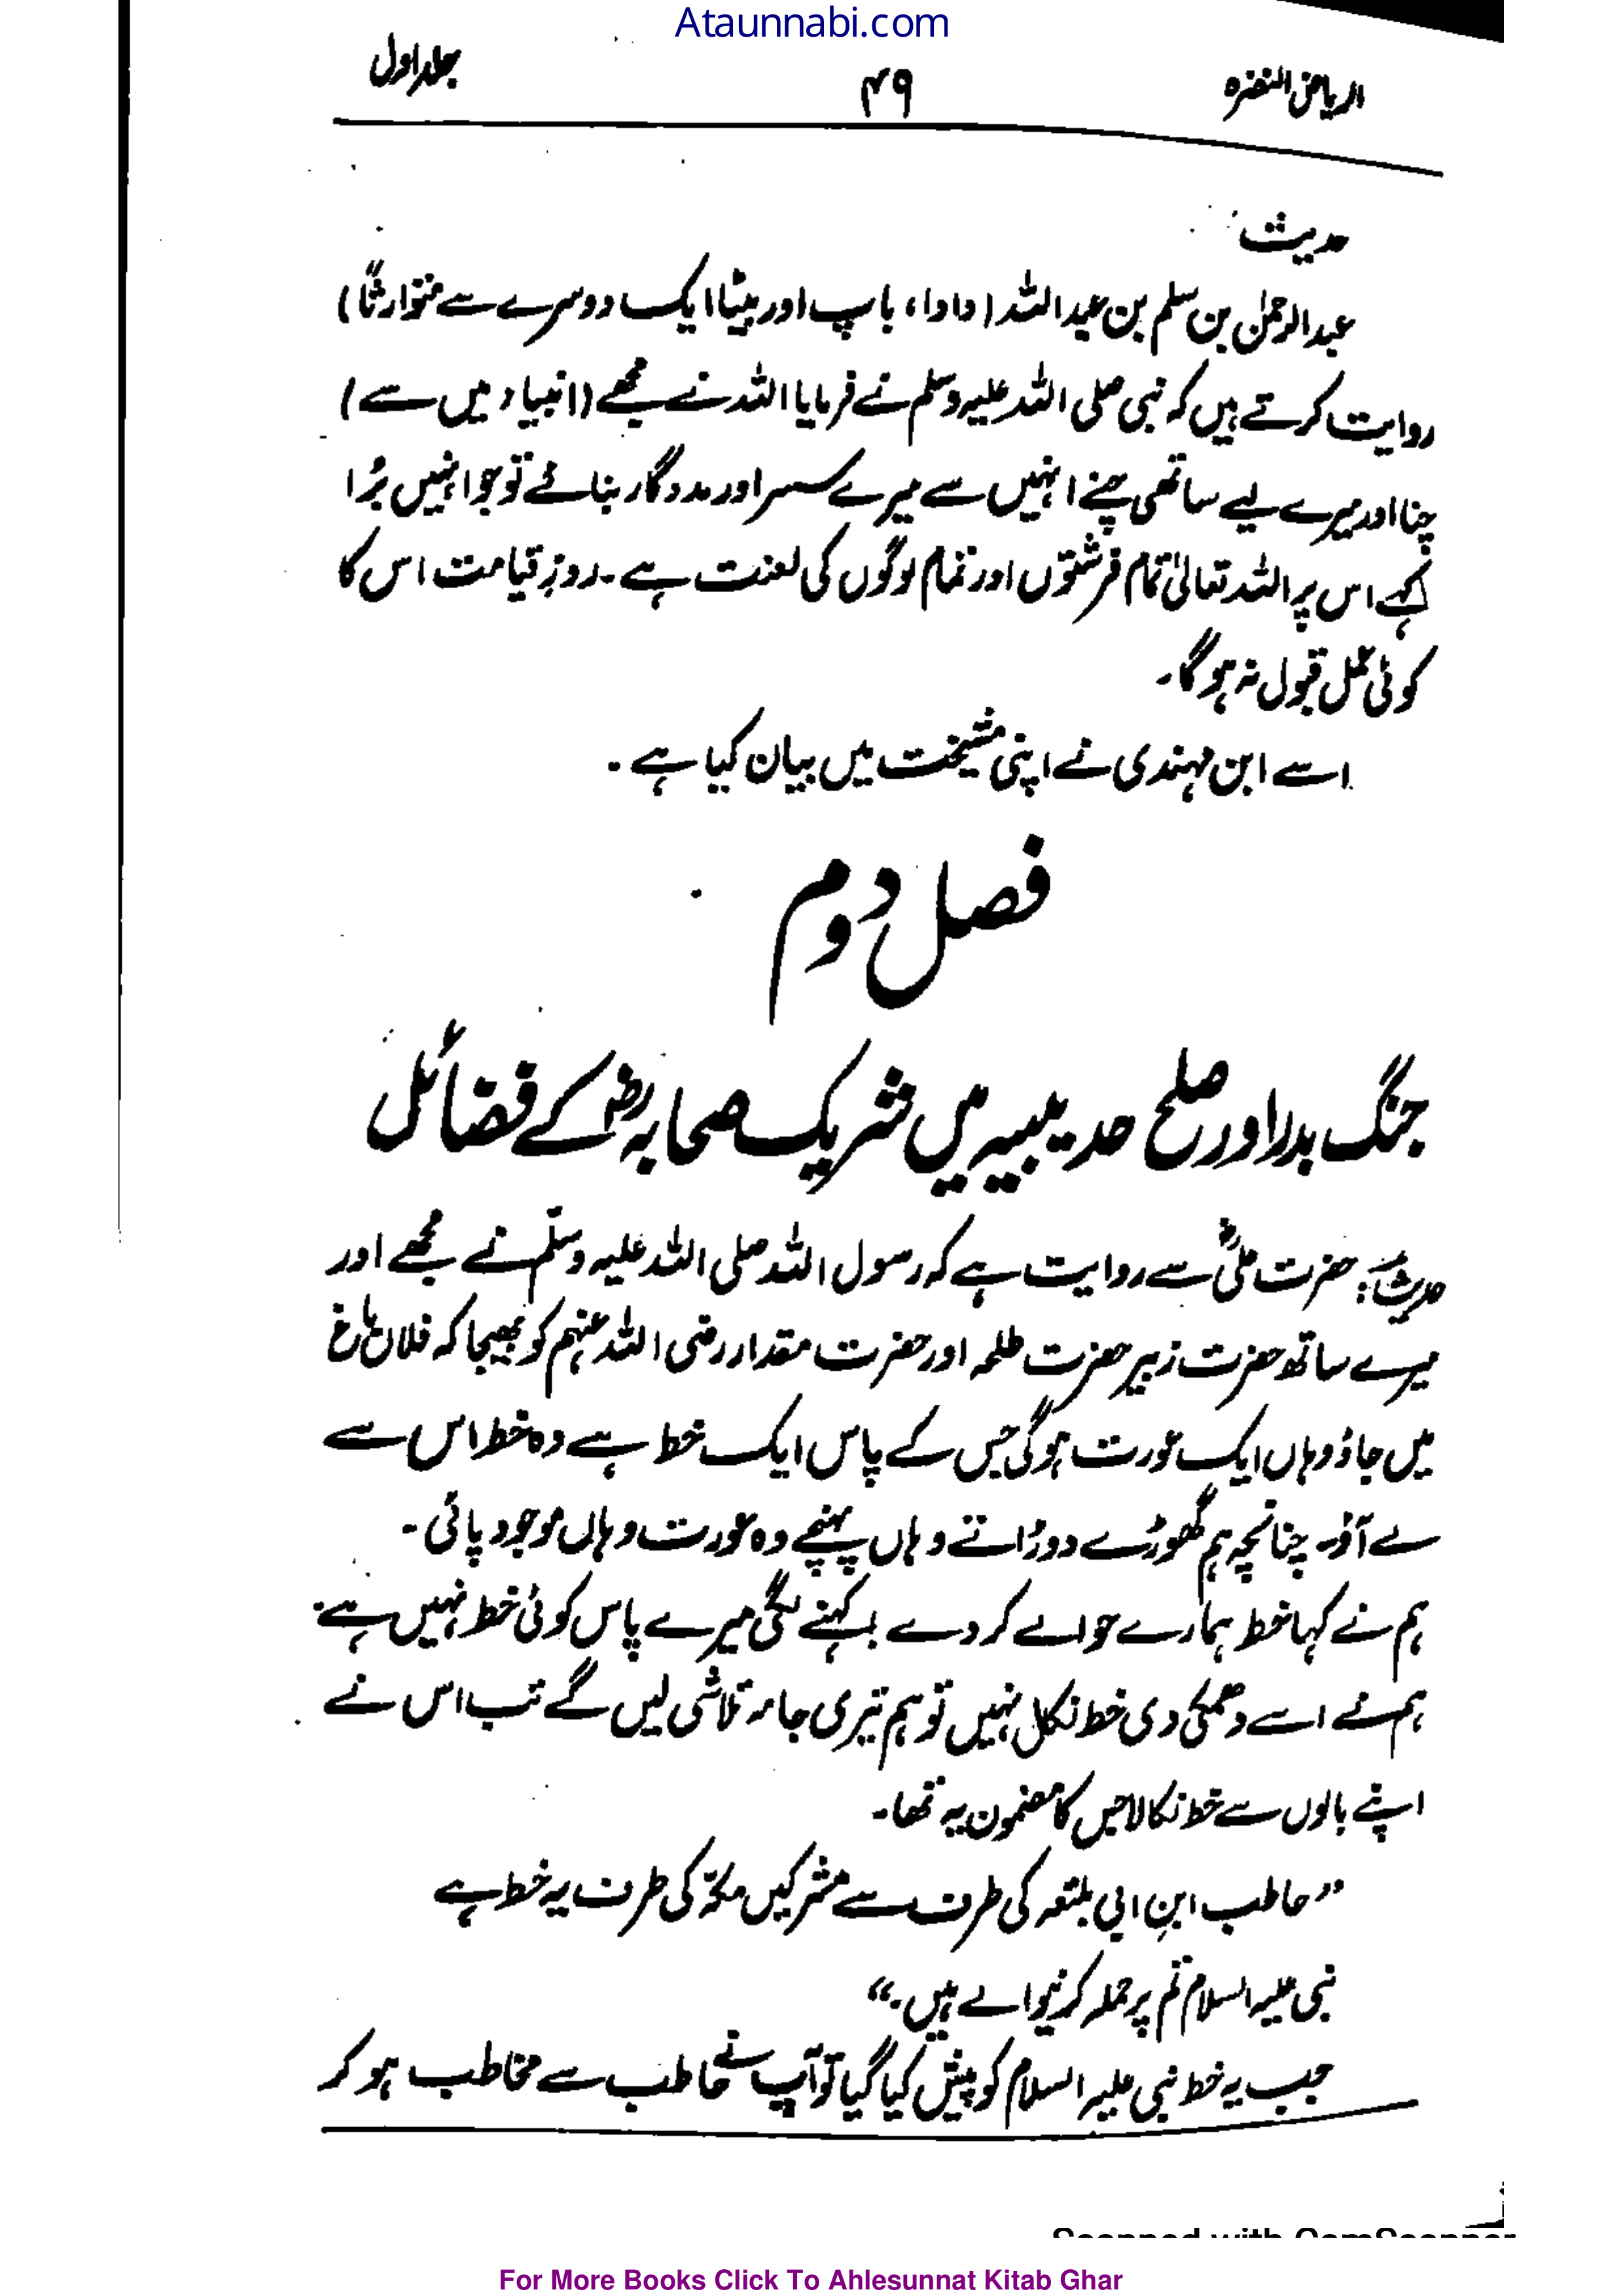 Ataunnabi.com
الریاض النضرہ ۴۹ جلد اول
حدیث
عبدالرحمٰن بن سلم بن عبداللہ (دادا، باپ اور بیٹا ایک دوسرے سے متوارثًا)
روایت کرتے ہیں کہ نبی صلی اللہ علیہ وسلم نے فرمایا اللہ نے مجھے (انبیاء میں سے)
چنا اور میرے لیے ساتھی چنے انہیں سے میرے سسر اور مددگار بنائے تو جو انہیں بُرا
کہے اس پر اللہ تعالیٰ تمام فرشتوں اور تمام لوگوں کی لعنت ہے۔ روزِ قیامت اس کا
کوئی عمل قبول نہ ہوگا۔
اسے ابن مہندی نے اپنی مشیخت میں بیان کیا ہے۔
فصل دوم
جنگ بدر اور صلح حدیبیہ میں شریک صحابہؓ کے فضائل
حدیث: حضرت علیؓ سے روایت ہے کہ رسول اللہ صلی اللہ علیہ وسلّم نے مجھے اور
میرے ساتھ حضرت زبیر حضرت طلحہ اور حضرت مقداد رضی اللہ عنہم کو بھیجا کہ فلاں باغ
میں جاؤ وہاں ایک عورت ہوگی جس کے پاس ایک خط ہے وہ خط اس سے
لے آؤ۔ چنانچہ ہم گھوڑے دوڑاتے وہاں پہنچے وہ عورت وہاں موجود پائی۔
ہم نے کہا خط ہمارے حوالے کر دے، کہنے لگی میرے پاس کوئی خط نہیں ہے۔
ہم نے اسے دھمکی دی خط نکال نہیں تو ہم تیری جامہ تلاشی لیں گے تب اس نے
اپنے بالوں سے خط نکالا جس کا مضمون یہ تھا۔
”حاطب ابنِ ابی بلتعہ کی طرف سے مشرکین مکّہ کی طرف یہ خط ہے
نبی علیہ السلام تم پر حملہ کرنیوالے ہیں۔“
جب یہ خط نبی علیہ السلام کو پیش کیا گیا تو آپ نے حاطب سے مخاطب ہو کر
Scanned with CamScanner
For More Books Click To Ahlesunnat Kitab Ghar